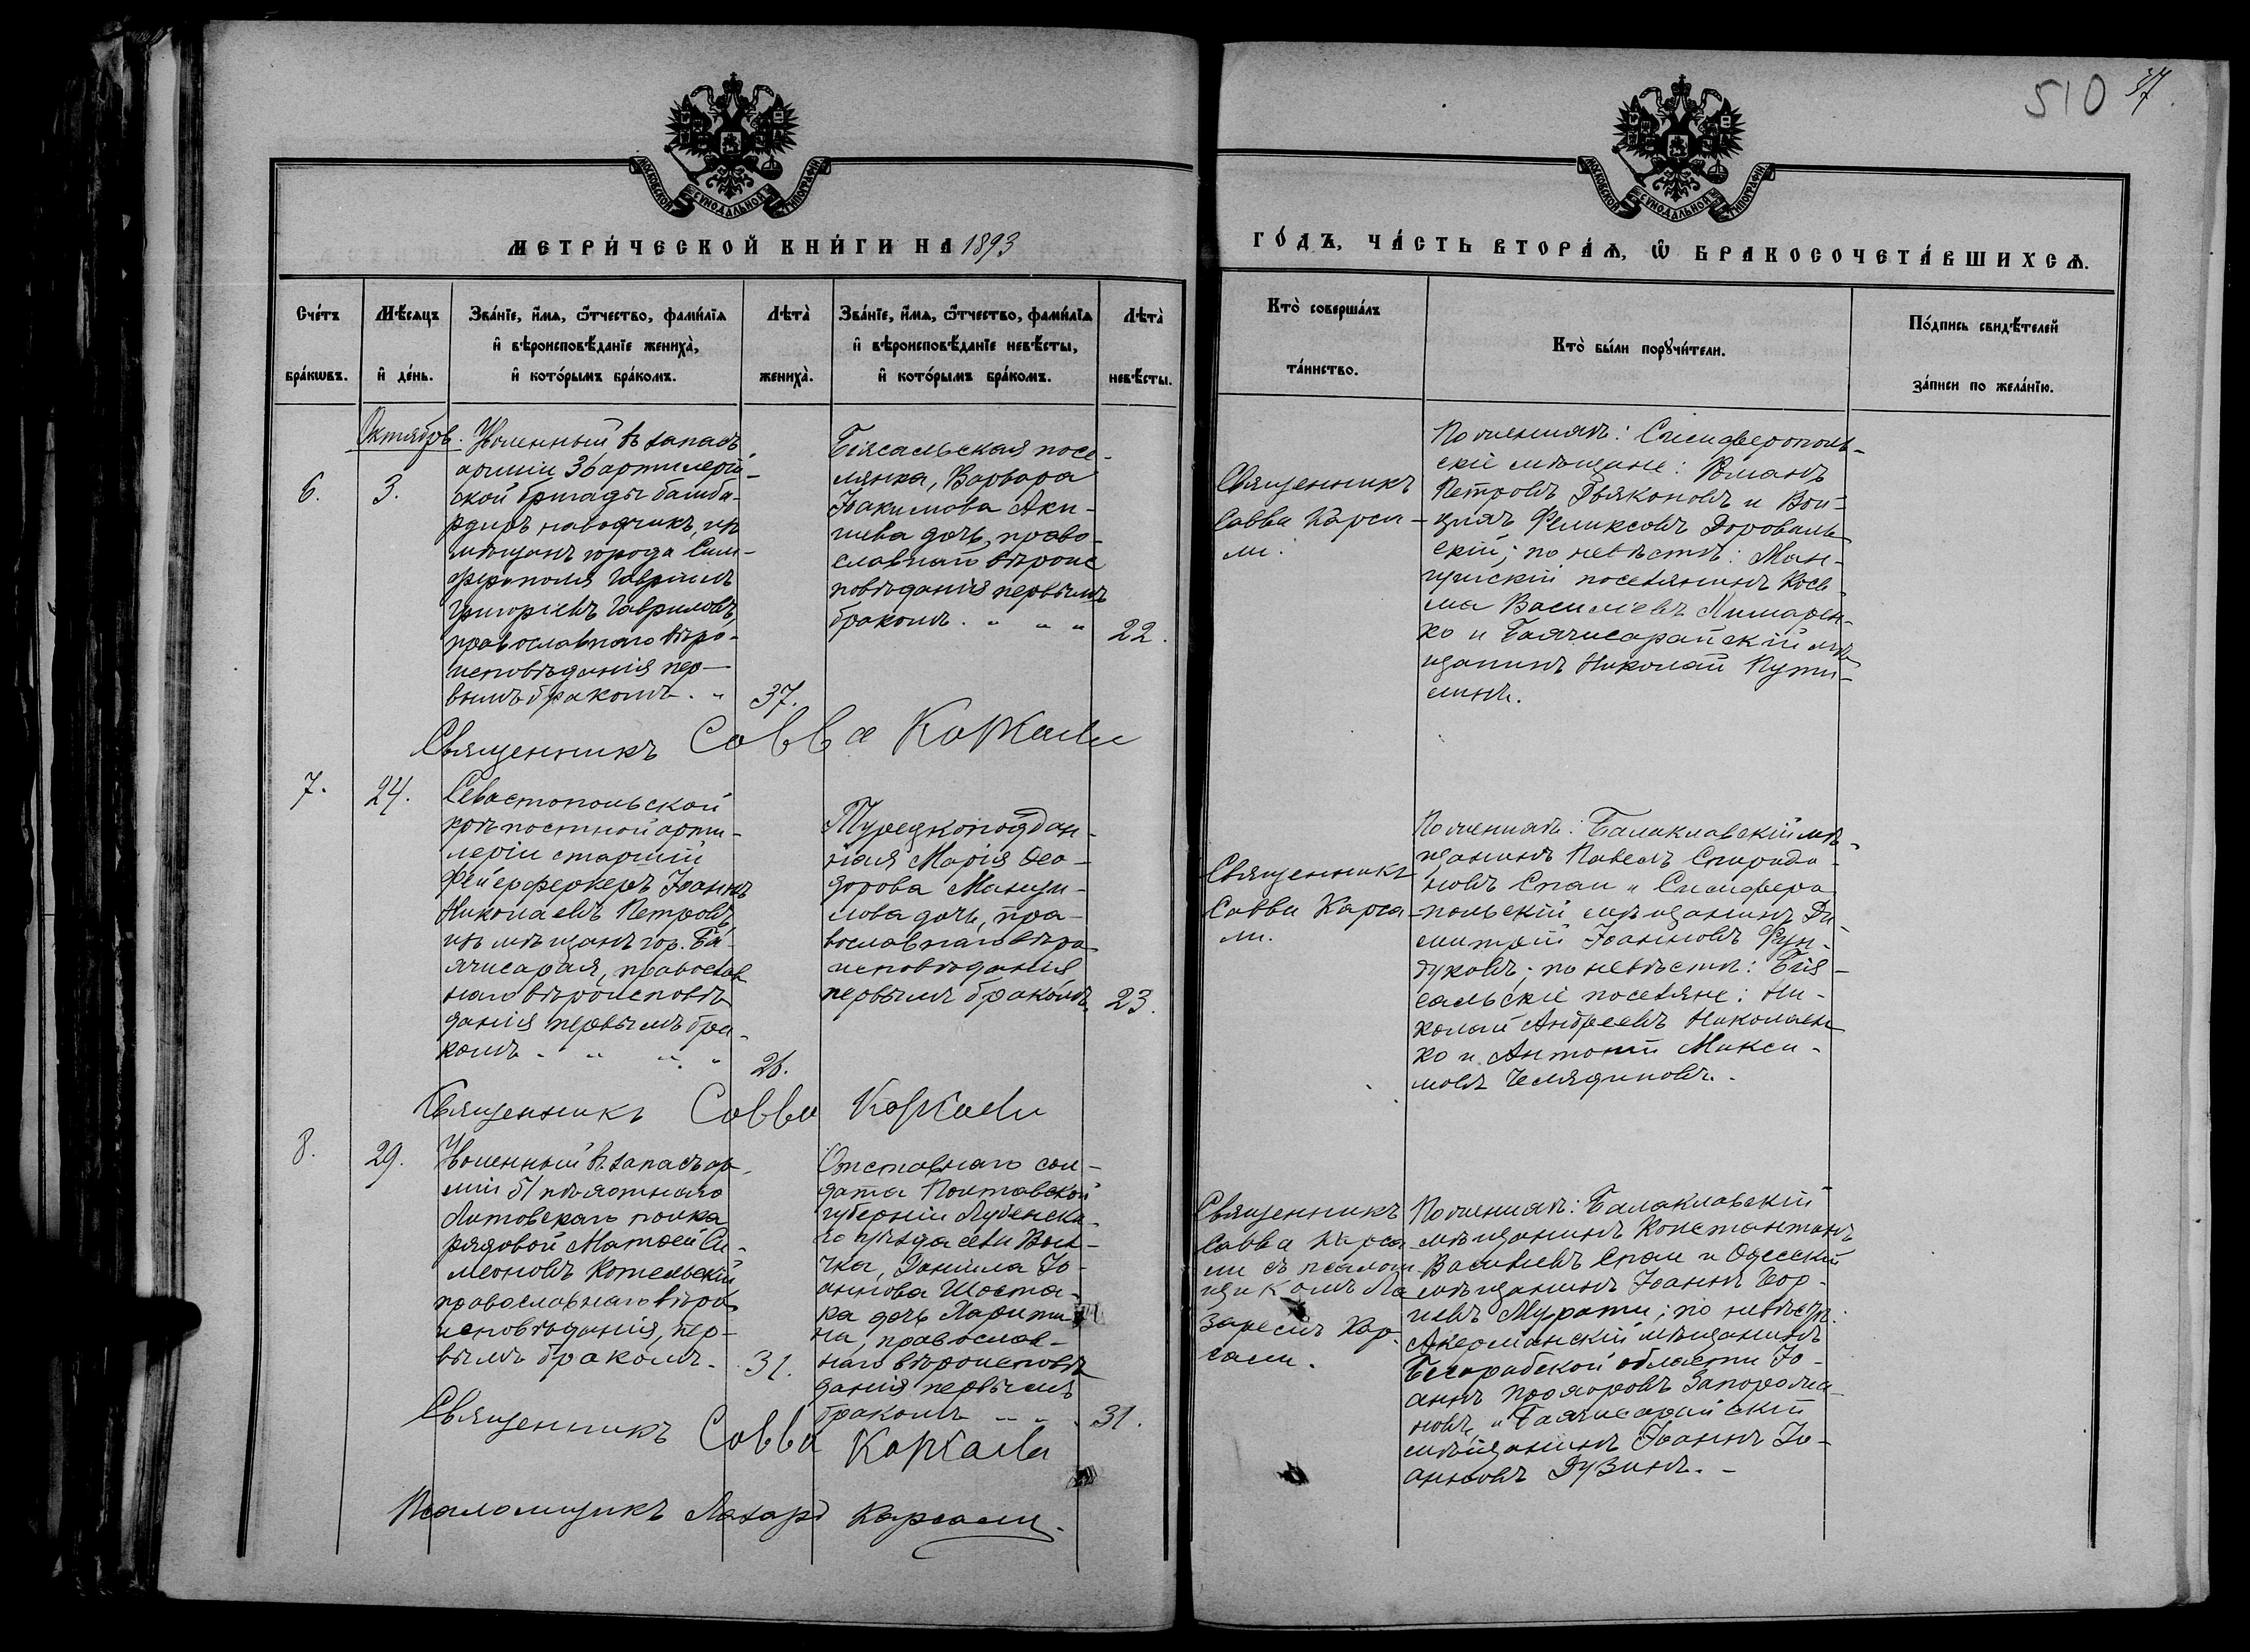 510 37
МОСКОВСКОЙ СѴНОДАЛЬНОЙ ТИПОГРАФІИ
МОСКОВСКОЙ СѴНОДАЛЬНОЙ ТИПОГРАФІИ
МЕТРИ́ЧЕСКОЙ КНИ́ГИ НА 1893
ГО́ДЪ, ЧА́СТЬ ВТОРА́Ѧ, Ѡ҆ БРАКОСОЧЕТА́ВШИХСѦ.
Сче́тъ
бра́кѡвъ.
Мѣ́сяцъ
и҆ де́нь.
Зва́нїе, и҆́мѧ, ѻ҆́тчество, фами́лїѧ
и҆ вѣроисповѣ́данїе жениха̀,
и҆ кото́рымъ бра́комъ.
Лѣта̀
жениха̀.
Зва́нїе, и҆́мѧ, ѻ҆́тчество, фами́лїѧ
и҆ вѣроисповѣ́данїе невѣ́сты,
и҆ кото́рымъ бра́комъ.
Лѣта̀
невѣ́сты.
Кто̀ соверша́лъ
та́инство.
Кто̀ бы́ли порꙋчи́тели.
По́дпись свидѣ́телей
за́писи по жела́нїю.
Октябрь.
6.
3.
Уволенный въ запасъ
арміи 36 артилерій-
ской бригады бомба-
рдиръ наводчикъ, изъ
мѣщанъ города Сим-
ферополя Гавріилъ
Григоріевъ Гавриловъ,
православнаго вѣро-
исповѣданія пер-
вымъ бракомъ. "
37.
Біясальская посе-
лянка, Варвара
Іоакимова Аки-
шева дочь, право-
славнаго вѣроис
повѣданія первымъ
бракомъ. " " "
22.
Священникъ
Савва Карса-
ли.
По женихѣ: Симферополь-
скіе мѣщане: Романъ
Петровъ Дьяконовъ и Вой-
цехъ Феликсовъ Дороваль-
скій; по невѣстѣ: Ман-
гушскій поселянинъ Косьма
Васильевъ Лимарен-
ко и Бахчисарайскій мѣ-
щанинъ Николай Пути-
линъ.
Священникъ Савва Карсали
7.
24.
Севастопольской
крѣпостной арти-
леріи старшій
Фейерферкеръ Іоаннъ
Николаевъ Петровъ,
изъ мѣщанъ гор. Ба-
хчисарая, православ
наго вѣроисповѣ
данія первымъ бра-
комъ. " " "
26.
Турецкоподдан-
ная Марія Ѳео-
дорова
дочь, пра-
вославнаго вѣро
исповѣданія
первымъ бракомъ.
23.
Священникъ
Савва Карса-
ли.
По женихѣ: Балаклавскій мѣ-
щанинъ Павелъ Спиридо-
новъ Спаи и Симферо
польскій мѣщанинъ Ди-
митрій Іоанновъ Фун-
дуковъ; по невѣстѣ: Бія-
сальскіе поселяне: Ни-
колай Андреевъ Николаен
ко и Антоній Макси-
мовъ Челядиновъ.
Священникъ Савва Карсали
8.
29.
Уволенный въ запасъ ар-
міи 51 пѣхотнаго
Литовскаго полка
рядовой Матѳей Си-
меоновъ Котельскій
православнаго вѣро
исповѣданія, пер-
вымъ бракомъ.
31.
Отставнаго сол-
дата Полтавской
губерніи Лубенска-
го уѣзда села Вол-
чка, Даніила Іо-
аннова Шоста-
ка дочь Харити-
на, православ-
наго вѣроисповѣ
данія первымъ
бракомъ " "
31.
Священникъ
Савва Карса
ли съ псалом
щикомъ Ла
заремъ Кар-
сали.
По женихѣ: Балаклавскій
мѣщанинъ Константинъ
Васильевъ Спаи и Одесскій
мѣщанинъ Іоаннъ Геор-
гіевъ Мурати; по невѣстѣ:
Акерманскій мѣщанинъ
Бесарабской области Іо-
аннъ
и Бахчисарайскій
мѣщанинъ Іоаннъ Іо-
анновъ Дузинъ.
Священникъ Савва Карсали
Псаломщикъ Лазарь Карсали.